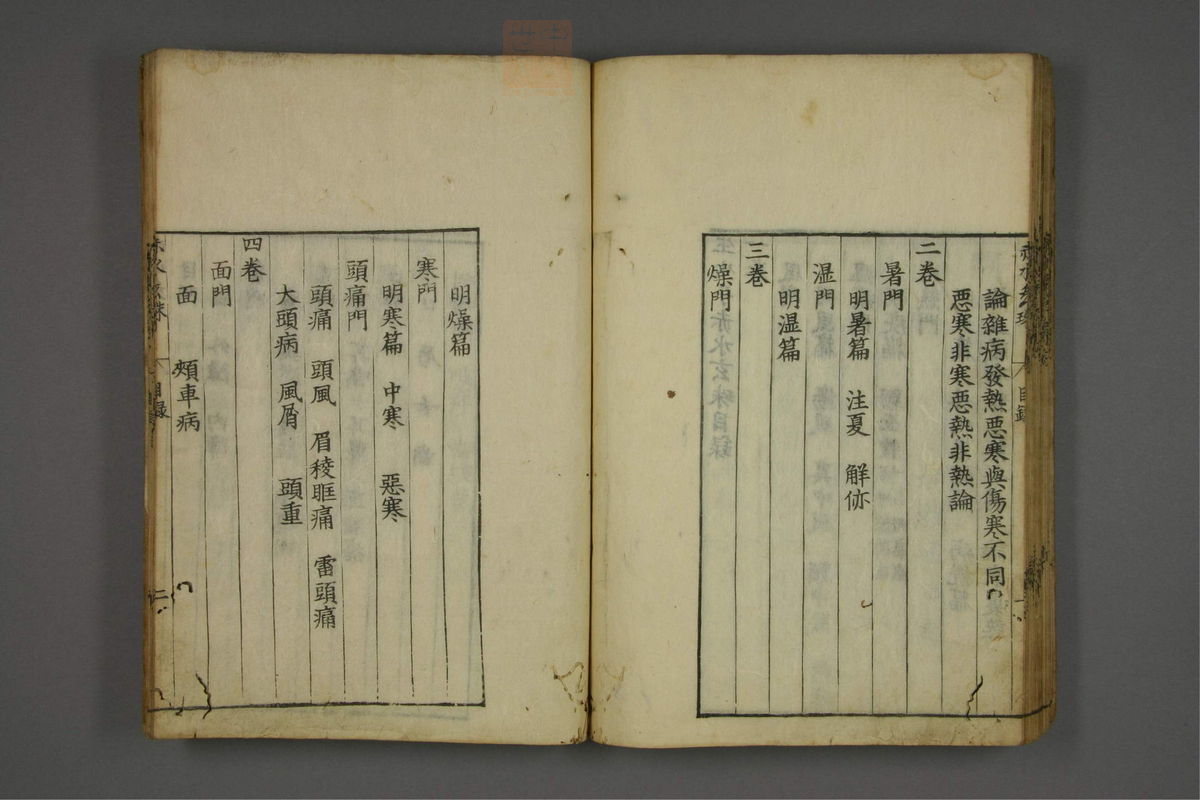 論雜病發熱惡寒與傷寒不同
惡寒非寒惡熱非熱論
二卷
暑門
明暑篇 注夏 解㑊
湿門
明湿篇
三卷
燥門
明燥篇
寒門
明寒篇 中寒 惡寒
頭痛門
頭痛 頭風 眉稜眶痛 雷頭痛
大頭病 風屑 頭重
四卷
面門
面 頰車病
目録
二